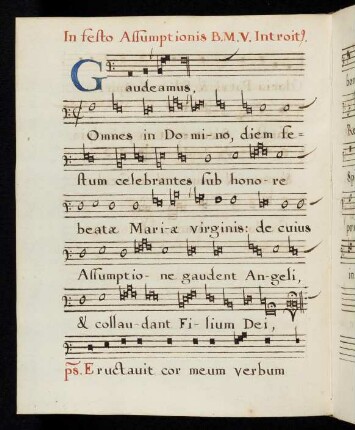 In festo Aſſumptionis B.M.V. Introitꝰ.
Gaudeamus,
Omnes in Do-mi-no, diem fe=
ſtum celebrantes ſub hono-re
beatæ Mari-æ virginis: de cuius
Aſſumptio-ne gaudent An-geli,
& collau-dant Fi-lium Dei,
ps. Eructauit cor meum verbum